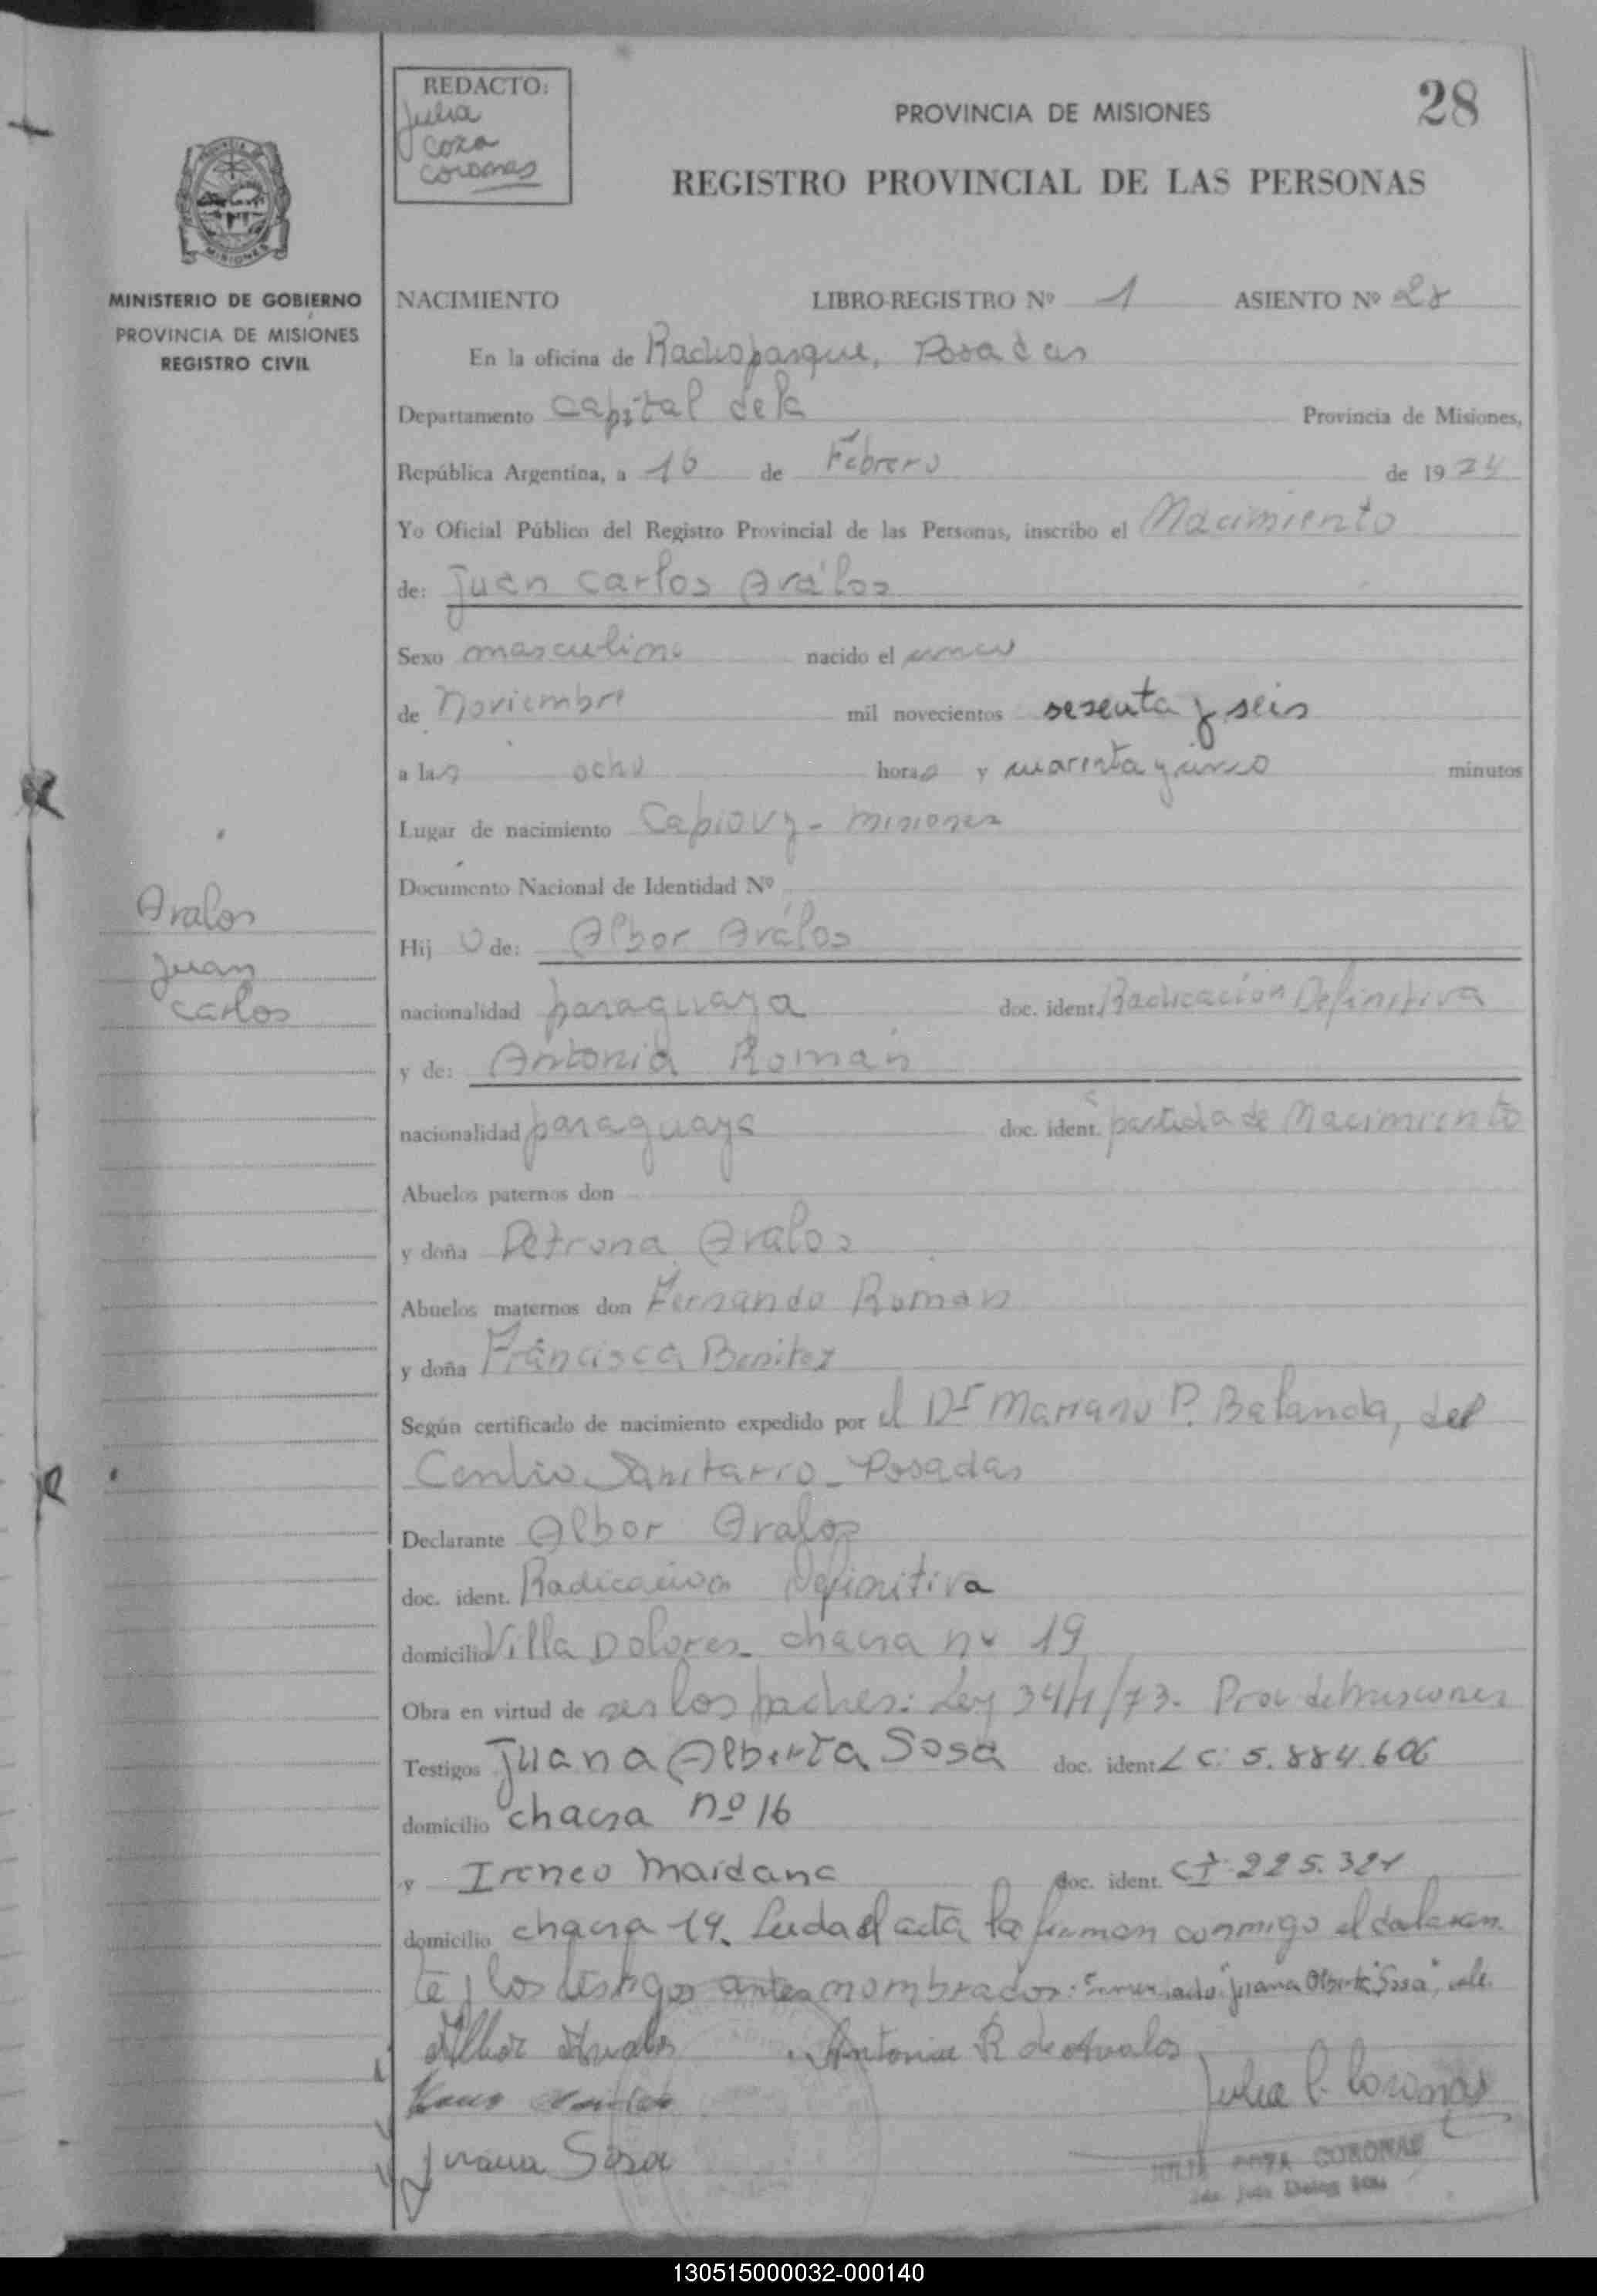 REDACTO:
Julia
Coza
Coronas
PROVINCIA DE MISIONES
28
REGISTRO PROVINCIAL DE LAS PERSONAS
MISIONES
MINISTERIO DE GOBIERNO
PROVINCIA DE MISIONES
REGISTRO CIVIL
NACIMIENTO LIBRO-REGISTRO Nº 1 ASIENTO Nº 28
En la oficina de Radioparque, Posadas
Departamento Capital de la Provincia de Misiones,
República Argentina, a 16 de Febrero de 1974
Yo Oficial Público del Registro Provincial de las Personas, inscribo el Nacimiento
de: Juan Carlos Aválos
Sexo masculino nacido el
de Noviembre mil novecientos sesenta y seis
a las ocho horas y cuarenta y cinco minutos
Lugar de nacimiento Capiovy - Misiones
Documento Nacional de Identidad Nº
Avalos
Juan
Carlos
Hijo de: Albor Aválos
nacionalidad paraguaya doc. ident. Radicación Definitiva
y de: Antonia Román
nacionalidad paraguaya doc. ident. partida de Nacimiento
Abuelos paternos don
y doña Petrona Avalos
Abuelos maternos don Fernando Roman
y doña Francisca Benitez
Según certificado de nacimiento expedido por el Dr Mariano P. Balanda, del
Centro Sanitario - Posadas
Declarante Albor Avalos
doc. ident. Radicación Definitiva
domicilio Villa Dolores - chacra nº 19
Obra en virtud de ser los padres: Ley 34/1/73. Prov de Misiones
Testigos Juana Alberta Sosa doc. ident. L C: 5.884.606
domicilio chacra nº 16
y Ireneo Maidana doc. ident. CI 225.321
domicilio chacra 19. Leida el acta la firman conmigo el declaran
te y los testigos antes nombrados: Enmendado "Juana Alberta Sosa", vale.
Albor Avalos Antonia R de Avalos
Julia C. Coronas
Juana Sosa
JULIA COZA CORONAS
130515000032-000140